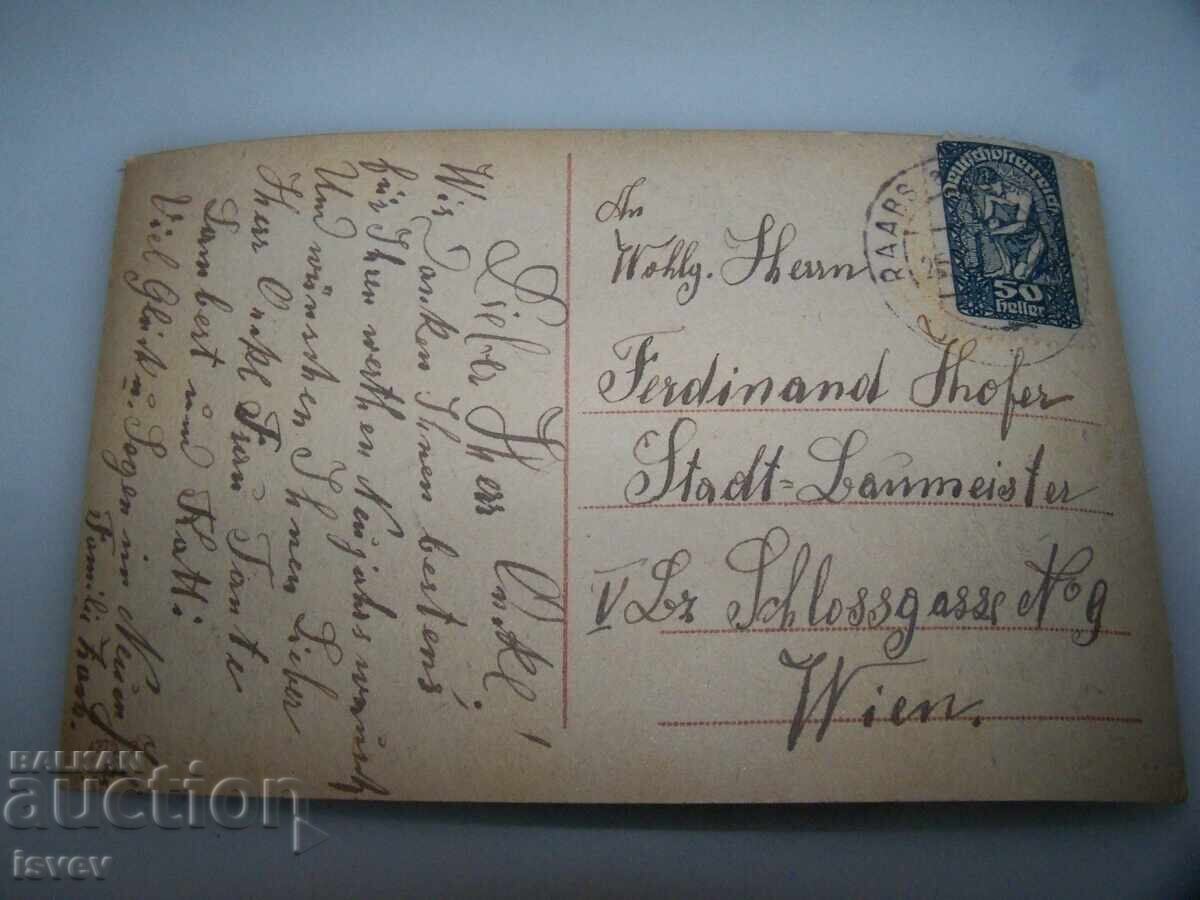 Lieber Herr Onkel!
Wir Danken Ihnen bestens
für Ihren werthen Neujahrswunsch
Und wünschen Ihnen Lieber
Herr Onkl Frau Tante
Lambert und Kathi
Viel Glück u. Segen in Neuen
Famili
An
Wohlg. Herrn
Ferdinand Hofer
Stadt=Baumeister
V Bz Schlossgasse No 9
Wien.
RAABS
Deutschösterreich
50
Heller
BALKAN
auction
isvev